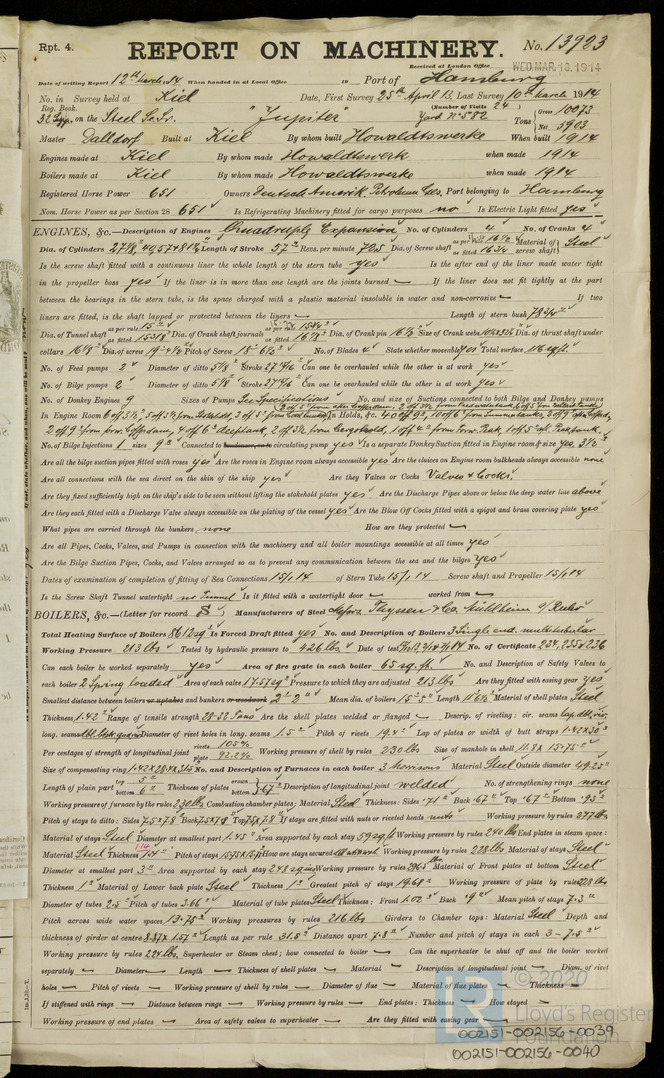 Rpt. 4. REPORT ON MACHINERY. No. 13923
Received at London Office WED. MAR. 18. 1914
Date of writing Report 12th March 14 When handed in at Local Office 19 Port of Hamburg
No. in Survey held at Kiel Date, First Survey 25th April 13 Last Survey 10th March 1914
Reg. Book. (Number of Visits 24)
on the Steel Sc. Sr. "Jupiter" Yard No 582 Tons Gross 10073 Net 5903
Master Dalldorf Built at Kiel By whom built Howaldtswerke When built 1914
Engines made at Kiel By whom made Howaldtswerk when made 1914
Boilers made at Kiel By whom made Howaldtswerke when made 1914
Registered Horse Power 651 Owners Deutsch Amerik. Petroleum Ges. Port belonging to Hamburg
Nom. Horse Power as per Section 28 651 Is Refrigerating Machinery fitted for cargo purposes no Is Electric Light fitted yes
ENGINES, &c.—Description of Engines Quadruple Expansion No. of Cylinders 4 No. of Cranks 4
Dia. of Cylinders Length of Stroke 57" Revs. per minute Dia. of Screw shaft as per rule as fitted 16 3/4 Material of screw shaft Steel
Is the screw shaft fitted with a continuous liner the whole length of the stern tube yes Is the after end of the liner made water tight
in the propeller boss yes If the liner is in more than one length are the joints burned — If the liner does not fit tightly at the part
between the bearings in the stern tube, is the space charged with a plastic material insoluble in water and non-corrosive — If two
liners are fitted, is the shaft lapped or protected between the liners — Length of stern bush
Dia. of Tunnel shaft as per rule as fitted Dia. of Crank shaft journals as per rule as fitted 16 1/8 Dia. of Crank pin 16 1/8 Size of Crank webs Dia. of thrust shaft under
collars 16 1/8 Dia. of screw Pitch of Screw No. of Blades 4 State whether moveable yes Total surface 116 sq ft.
No. of Feed pumps 2 Diameter of ditto 5 1/8 Stroke Can one be overhauled while the other is at work yes
No. of Bilge pumps 2 Diameter of ditto 5 1/8 Stroke Can one be overhauled while the other is at work yes
No. of Donkey Engines 9 Sizes of Pumps See Specifications No. and size of Suctions connected to both Bilge and Donkey pumps
In Engine Room In Holds, &c.
No. of Bilge Injections 1 sizes 9" Connected to circulating pump yes Is a separate Donkey Suction fitted in Engine room & size yes, 3 1/2"
Are all the bilge suction pipes fitted with roses yes Are the roses in Engine room always accessible yes Are the sluices on Engine room bulkheads always accessible none
Are all connections with the sea direct on the skin of the ship yes Are they Valves or Cocks Valves & Cocks
Are they fixed sufficiently high on the ship's side to be seen without lifting the stokehold plates yes Are the Discharge Pipes above or below the deep water line above
Are they each fitted with a Discharge Valve always accessible on the plating of the vessel yes Are the Blow Off Cocks fitted with a spigot and brass covering plate yes
What pipes are carried through the bunkers none How are they protected —
Are all Pipes, Cocks, Valves, and Pumps in connection with the machinery and all boiler mountings accessible at all times yes
Are the Bilge Suction Pipes, Cocks, and Valves arranged so as to prevent any communication between the sea and the bilges yes
Dates of examination of completion of fitting of Sea Connections of Stern Tube Screw shaft and Propeller
Is the Screw Shaft Tunnel watertight no Tunnel Is it fitted with a watertight door — worked from —
BOILERS, &c.—(Letter for record S) Manufacturers of Steel Thyssen & Co. Mülheim a/Ruhr
Total Heating Surface of Boilers 8612 sq' Is Forced Draft fitted yes No. and Description of Boilers 3 Single end. multitubular
Working Pressure 213 lbs Tested by hydraulic pressure to 426 lbs. Date of test No. of Certificate 234, 235 & 236
Can each boiler be worked separately yes Area of fire grate in each boiler 65 sq. ft. No. and Description of Safety Valves to
each boiler 2 Spring loaded Area of each valve Pressure to which they are adjusted 213 lbs Are they fitted with easing gear yes
Smallest distance between boilers or uptakes and bunkers or woodwork Mean dia. of boilers Length Material of shell plates Steel
Thickness 1.42" Range of tensile strength 28-32 Tons Are the shell plates welded or flanged — Descrip. of riveting: cir. seams
long. seams Diameter of rivet holes in long. seams 1.5" Pitch of rivets 19.4" Lap of plates or width of butt straps
Per centages of strength of longitudinal joint rivets 105% plate 92.2% Working pressure of shell by rules 230 lbs Size of manhole in shell 11.8 x 15.75"
Size of compensating ring No. and Description of Furnaces in each boiler 3 Morrisons Material Steel Outside diameter 49.25"
Length of plain part top 5" bottom 6" Thickness of plates crown bottom .67" Description of longitudinal joint welded No. of strengthening rings none
Working pressure of furnace by the rules 230 lbs Combustion chamber plates: Material Steel Thickness: Sides .71" Back .67" Top .67" Bottom .95"
Pitch of stays to ditto: Sides 7.5x7.8 Back Top If stays are fitted with nuts or riveted heads nuts Working pressure by rules
Material of stays Steel Diameter at smallest part 1.45" Area supported by each stay 59 sq ft Working pressure by rules 240 lbs End plates in steam space:
Material Steel Thickness 1.14 Pitch of stays How are stays secured Working pressure by rules 228 lbs Material of stays Steel
Diameter at smallest part 3" Area supported by each stay 248 sq ins Working pressure by rules Material of Front plates at bottom Steel
Thickness 1" Material of Lower back plate Steel Thickness 1" Greatest pitch of stays Working pressure of plate by rules 228 lbs
Diameter of tubes 2.5" Pitch of tubes 3.66" Material of tube plates Steel Thickness: Front 1.02 Back .9" Mean pitch of stays 7.3"
Pitch across wide water spaces 13.75" Working pressures by rules 216 lbs Girders to Chamber tops: Material Steel Depth and
thickness of girder at centre 8.87 x 1.57" Length as per rule 31.5" Distance apart 7.8" Number and pitch of stays in each 3 - 7.5"
Working pressure by rules 224 lbs. Superheater or Steam chest; how connected to boiler — Can the superheater be shut off and the boiler worked
separately — Diameter — Length — Thickness of shell plates — Material — Description of longitudinal joint — Diam. of rivet
holes — Pitch of rivets — Working pressure of shell by rules — Diameter of flue — Material of flue plates — Thickness —
If stiffened with rings — Distance between rings — Working pressure by rules — End plates: Thickness — How stayed —
Working pressure of end plates — Area of safety valves to superheater — Are they fitted with easing gear —
© 2020
Lloyd's Register
Foundation
002151-002156-0039
002151-002156-0040